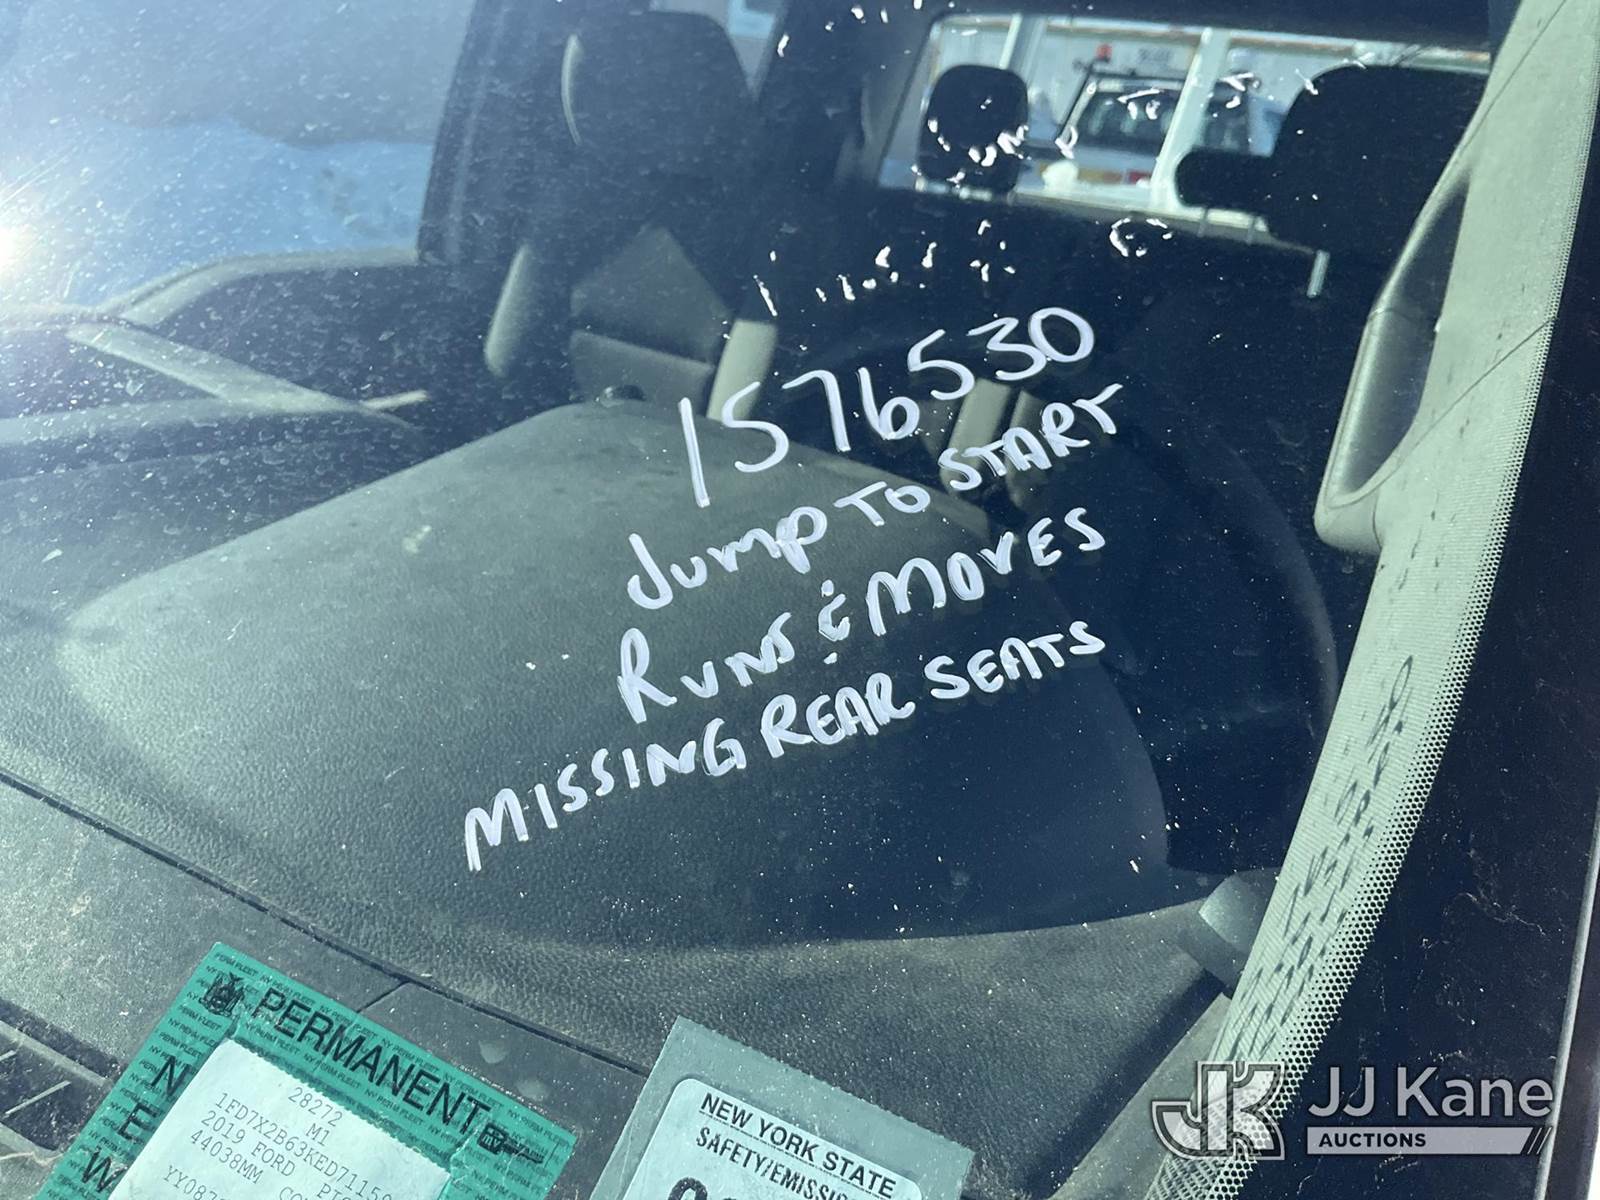 1576530
JUMP TO START
RUNS & MOVES
MISSING REAR SEATS
PERMANENT
28272
M1
1FD7X2B63KED7115
2019 FORD
44038MM
NEW YORK STATE
SAFETY/EMISSI
JJ Kane
AUCTIONS